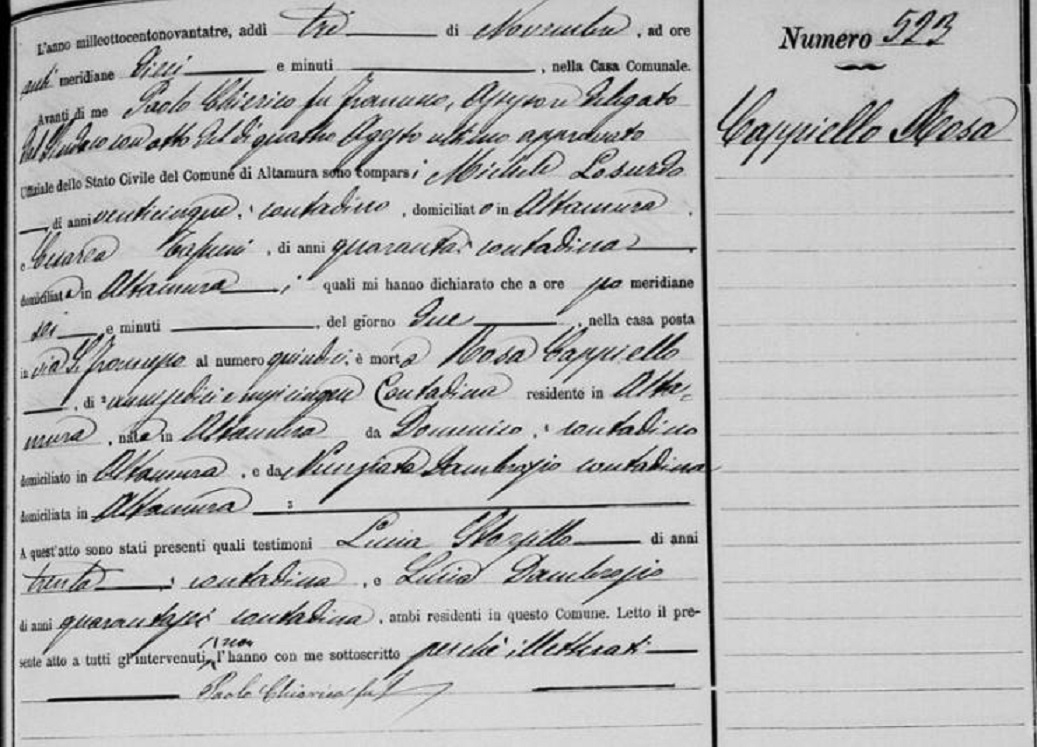 Numero 523
Cappiello Rosa
L'anno milleottocentonovantatre, addì tre di Novembre, ad ore
anti meridiane dieci e minuti, nella Casa Comunale.
Avanti di me Paolo Chierico fu Francesco, Assessore delegato
dal Sindaco con atto del dì quattro Agosto ultimo approvato
Uffiziale dello Stato Civile del Comune di Altamura sono comparsi Michele Losurdo
, di anni venticinque, contadino, domiciliato in Altamura
e Cesarea, di anni quaranta, contadina
domiciliata in Altamura, i quali mi hanno dichiarato che a ore po meridiane
sei e minuti, del giorno due, nella casa posta
in via S. Francesco al numero quindici, è morta Rosa Cappiello
, di anni sedici e mesi cinque Contadina residente in Alta-
mura, nata in Altamura da Domenico, contadino
domiciliato in Altamura, e da Nunziata Dambrosio contadina
domiciliata in Altamura
A quest'atto sono stati presenti quali testimoni Lucia di anni
trenta, contadina, e Lucia Dambrosio
di anni quarantasei contadina, ambi residenti in questo Comune. Letto il pre-
sente atto a tutti gl'intervenuti, non l'hanno con me sottoscritto perchè illetterati
Paolo Chierico fu F